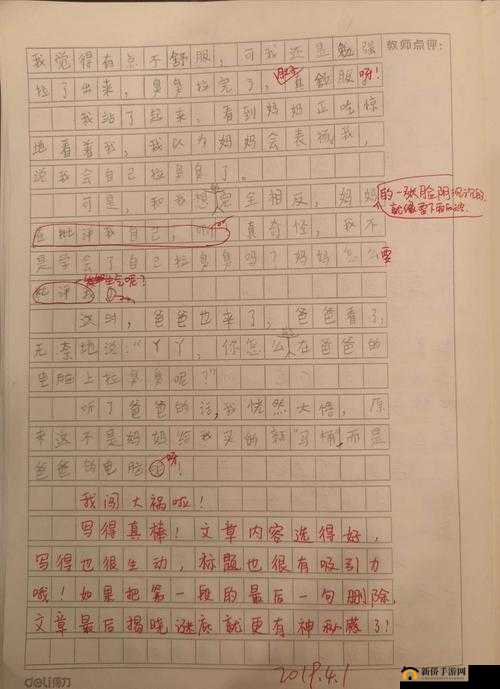 教师点评:
我觉得有点不舒服,可我还是勉强
拉了出来,臭臭拉完了,肚子真舒服呀!
我站了起来,看到妈妈正吃惊
地看着我,我以为妈妈会表扬我,
说我会自己拉臭臭了。
可是,和我想的完全相反,妈妈
的一张脸阴沉沉的,
就像要下雨
在批评我自己,真奇怪,我不
是学会了自己拉臭臭吗?妈妈怎么要
批评我
生气呢?
这时,爸爸也来了,爸爸看了,
无奈地说:“丫丫,你怎么在爸爸的
电脑上拉臭臭呢?”
听了爸爸的话,我恍然大悟,原
来这不是妈妈给我买的新“马桶”,而是
爸爸的电脑呀!
我闯大祸啦!
写得真棒!文章内容选得好,
写得也很生动,标题也很有吸引力
哦!如果把第一段的最后一句删除,
文章最后揭晓谜底就更有神秘感了!
2019.4.1
deli得力
新侨手游网